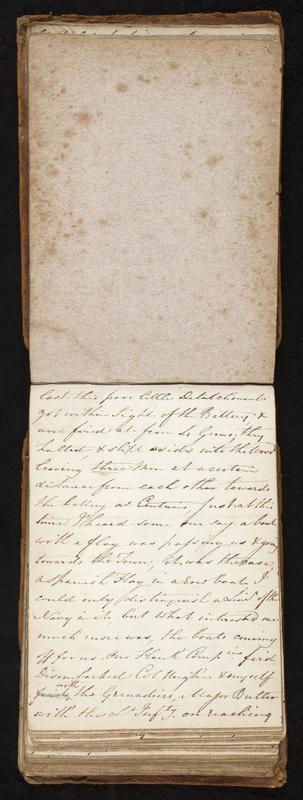 last this poor little Detatchment
got within Sight of the Battery &
were fired at from 4 Guns, they
halted & slipt aside into the Wood
leaving three Men at a certain
distance from each other towards
the battery as Centries, Just at this
time I heard some one say a boat
with a flag was passing us & going
towards the Town, it was the case,
a Spanish Flag in a Row boat I
could only distinguish a Lieut of the
Navy in it, but what interested me
much more was, the boats coming
off for us. Our Flank Comps first
Disembarked Col Hughes & myself
with the Grenadiers, Major Butler
with the Lt Infty, on reaching